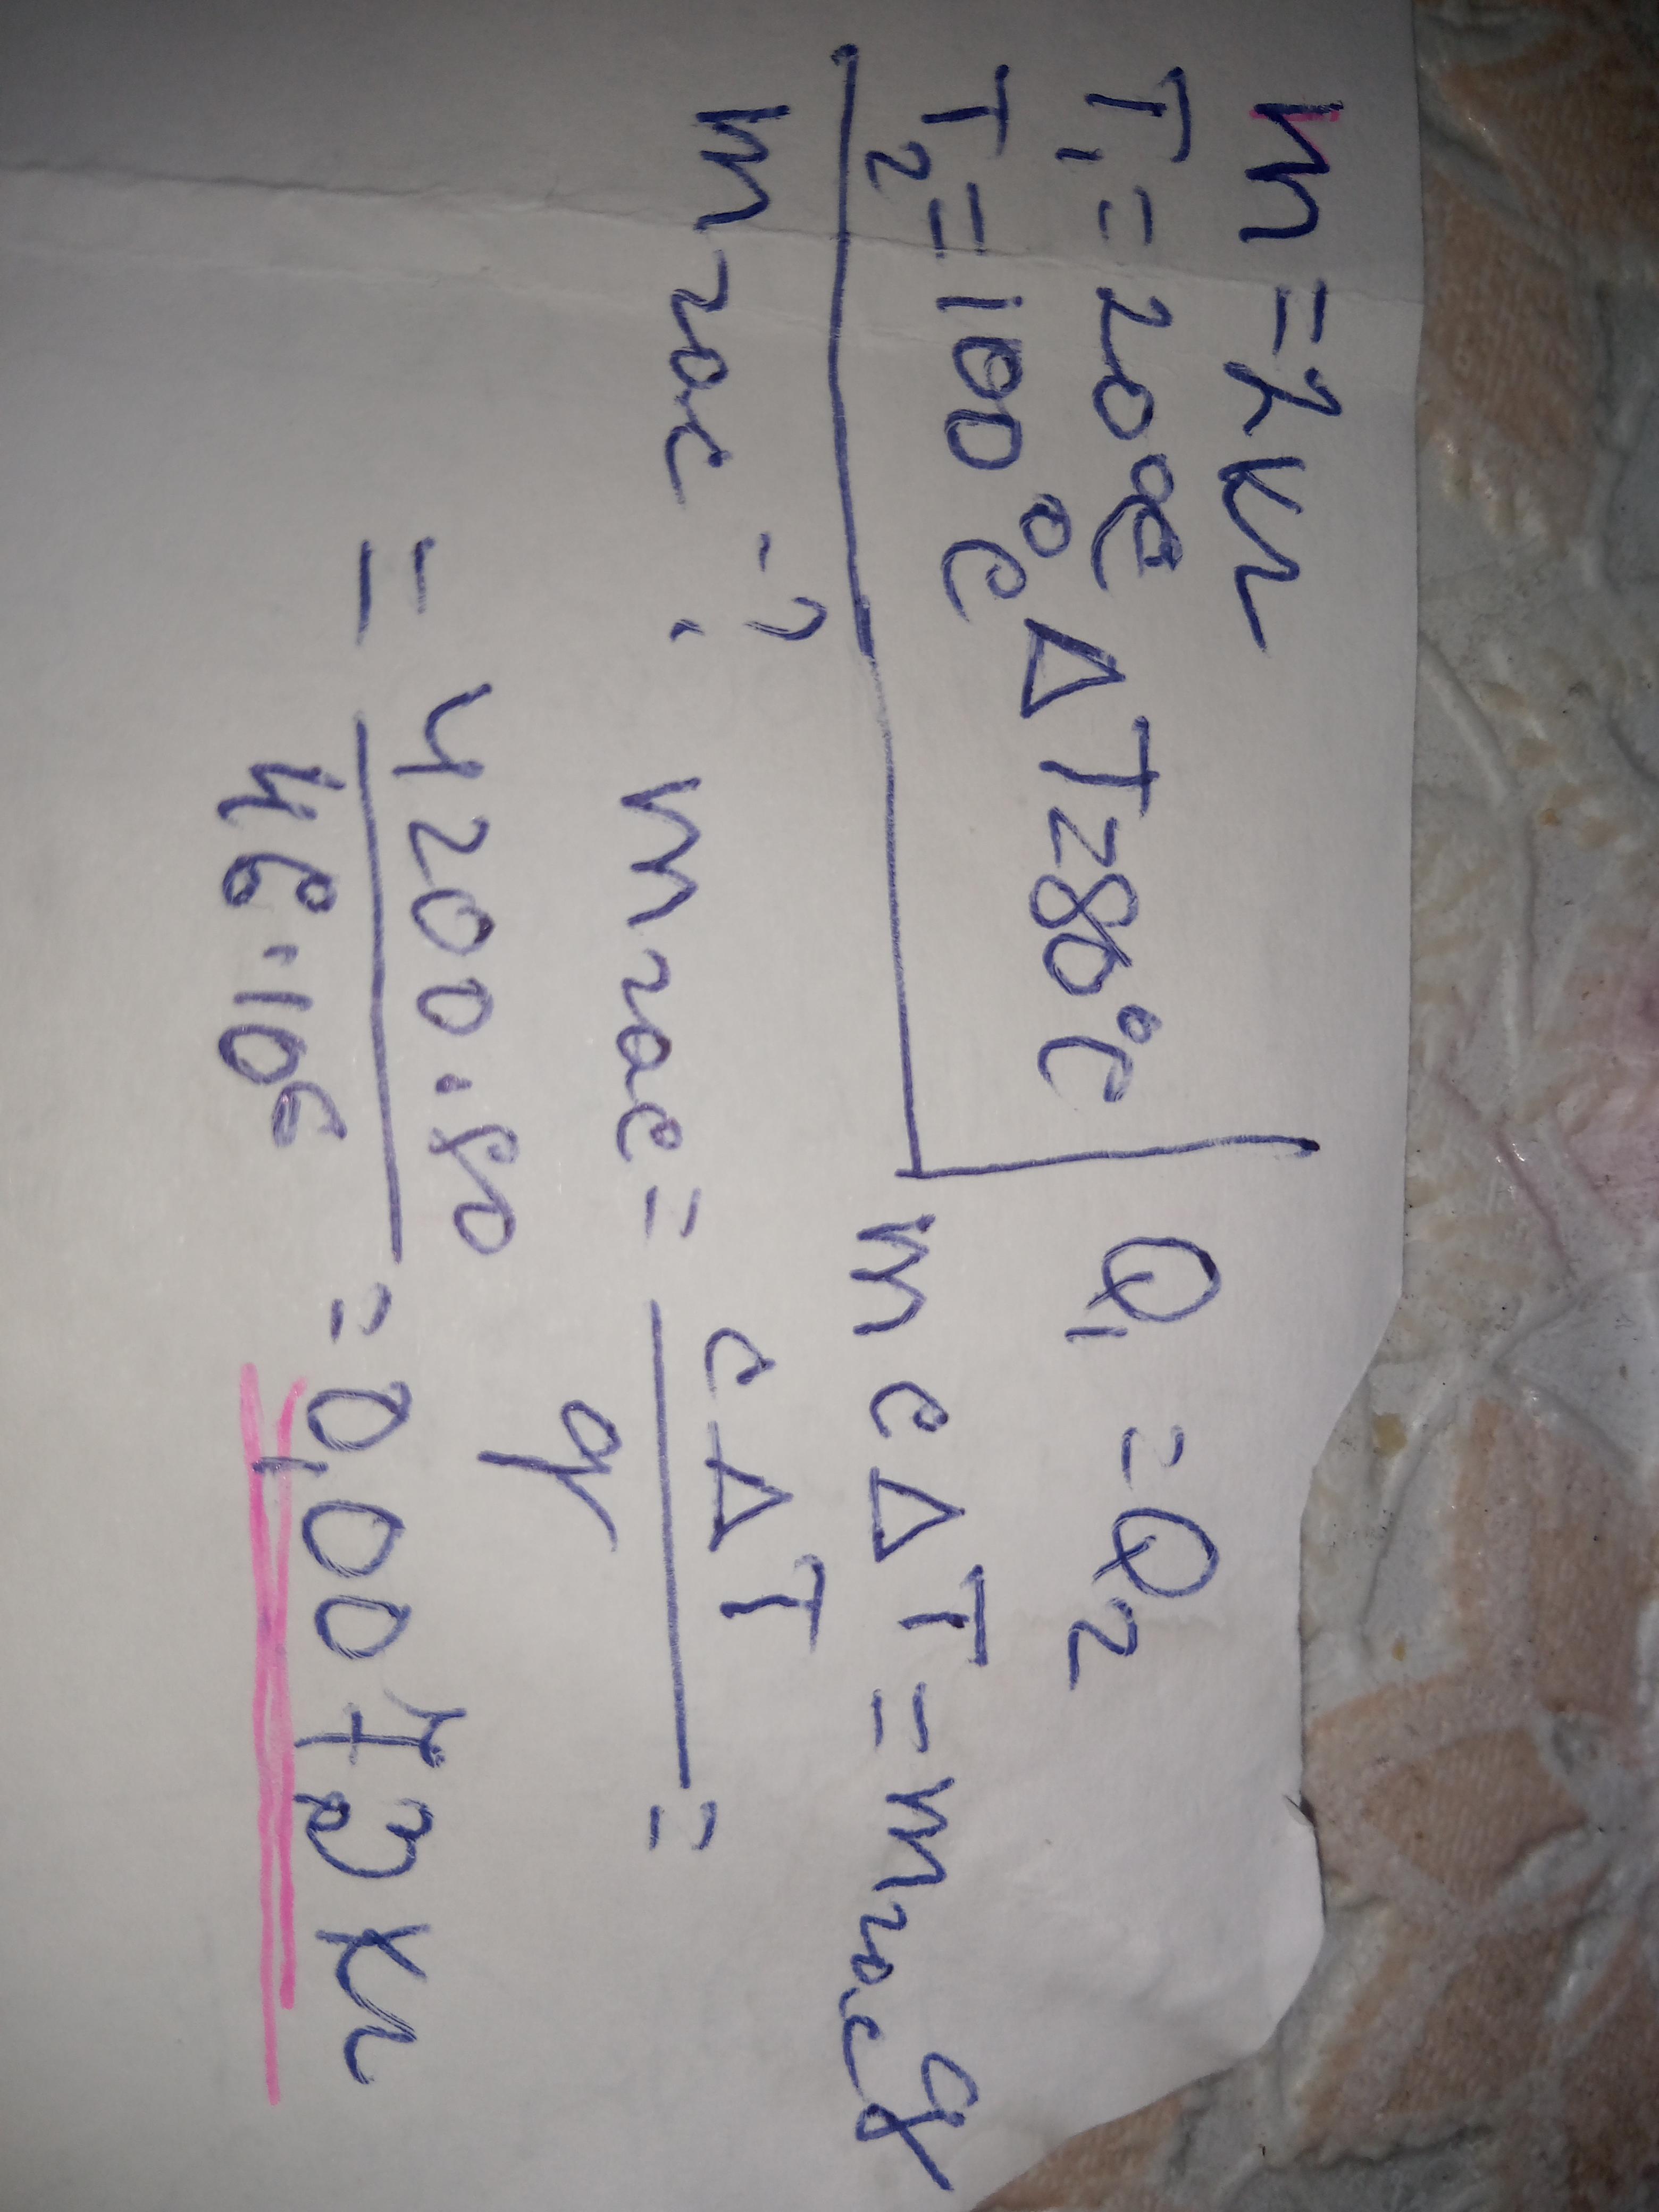 m = 2 кг
T₁ = 20°C ΔT = 80°C
T₂ = 100°C
m газ - ?
Q₁ = Q₂
m c ΔT = m газ q
m газ = c ΔT / q =
= 4200 · 80 / 46 · 10⁶ = 0,0073 кг